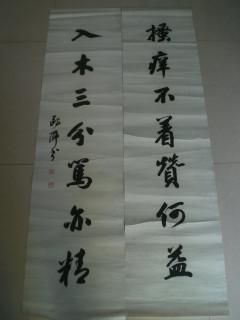 搔痒不着赞何益
入木三分骂亦精